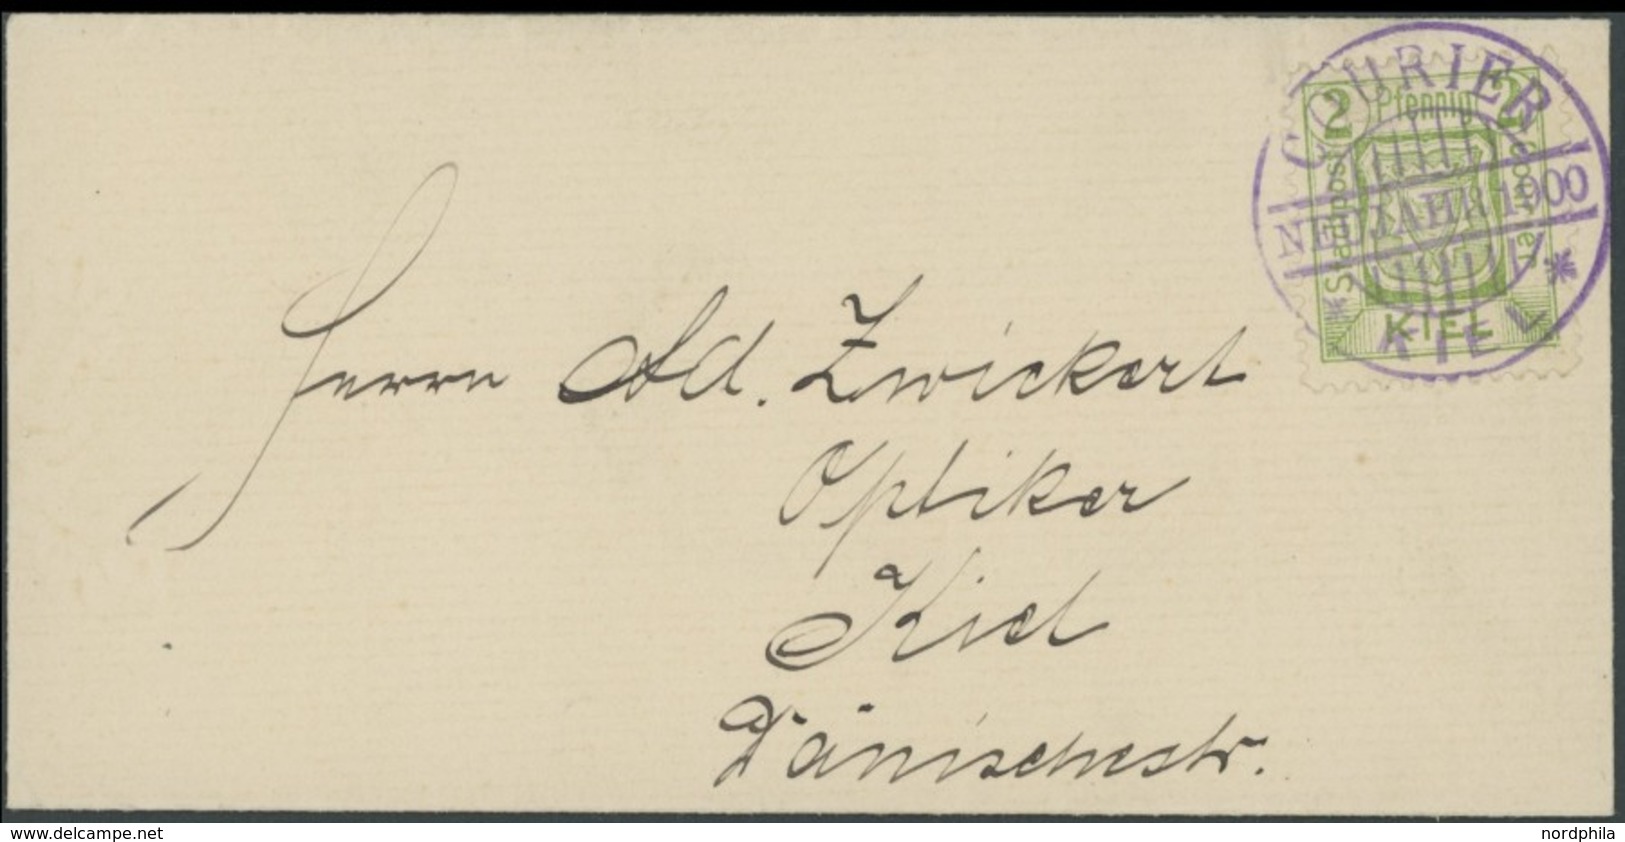 COURIER
2 Pfennig 2
Stadtpost
Courier
NEUJAHR 1900
KIEL
* KIEL *
Herrn Ad. Zwickert
Optiker
Kiel
Dänischestr.
www.delcampe.net
nordphila